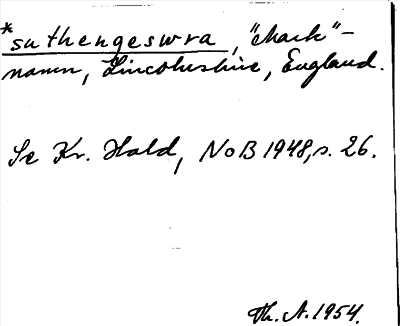 *suthengeswra, "mark"-
namn, Lincolnshire, England.
Se Kr. Hald, NoB 1948, s. 26.
Th. A. 1954.